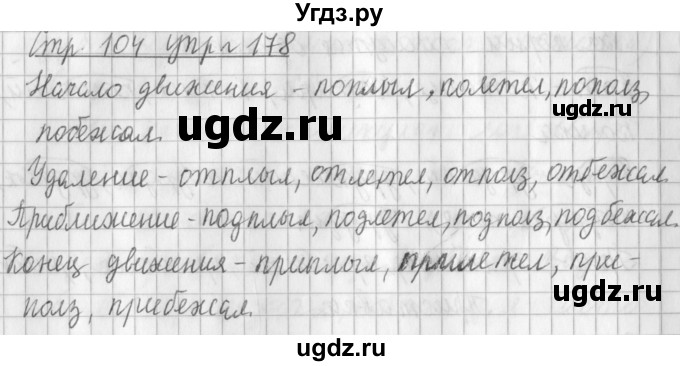 Угдз.ру
Стр. 104 упр. 178
Начало движения - поплыл, полетел, пополз,
побежал.
ugdz.ru
ugdz.ru
Удаление - отплыл, отлетел, отполз, отбежал.
Приближение - подплыл, подлетел, подполз, подбежал.
Конец движения - приплыл, прилетел, при-
полз, прибежал.
ugdz.ru
ugdz.ru